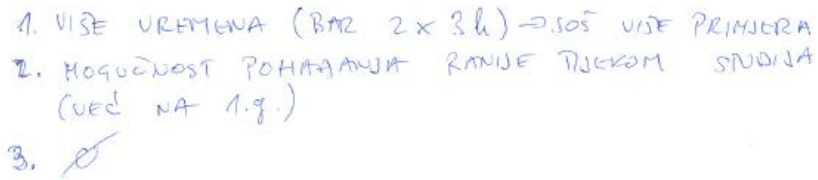 1. VIŠE VREMENA (BAR 2 x 3h) → JOŠ VIŠE PRIMJERA
2. MOGUĆNOST POHAĐANJA RANIJE TIJEKOM STUDIJA
(VEĆ NA 1.g.)
3. Ø